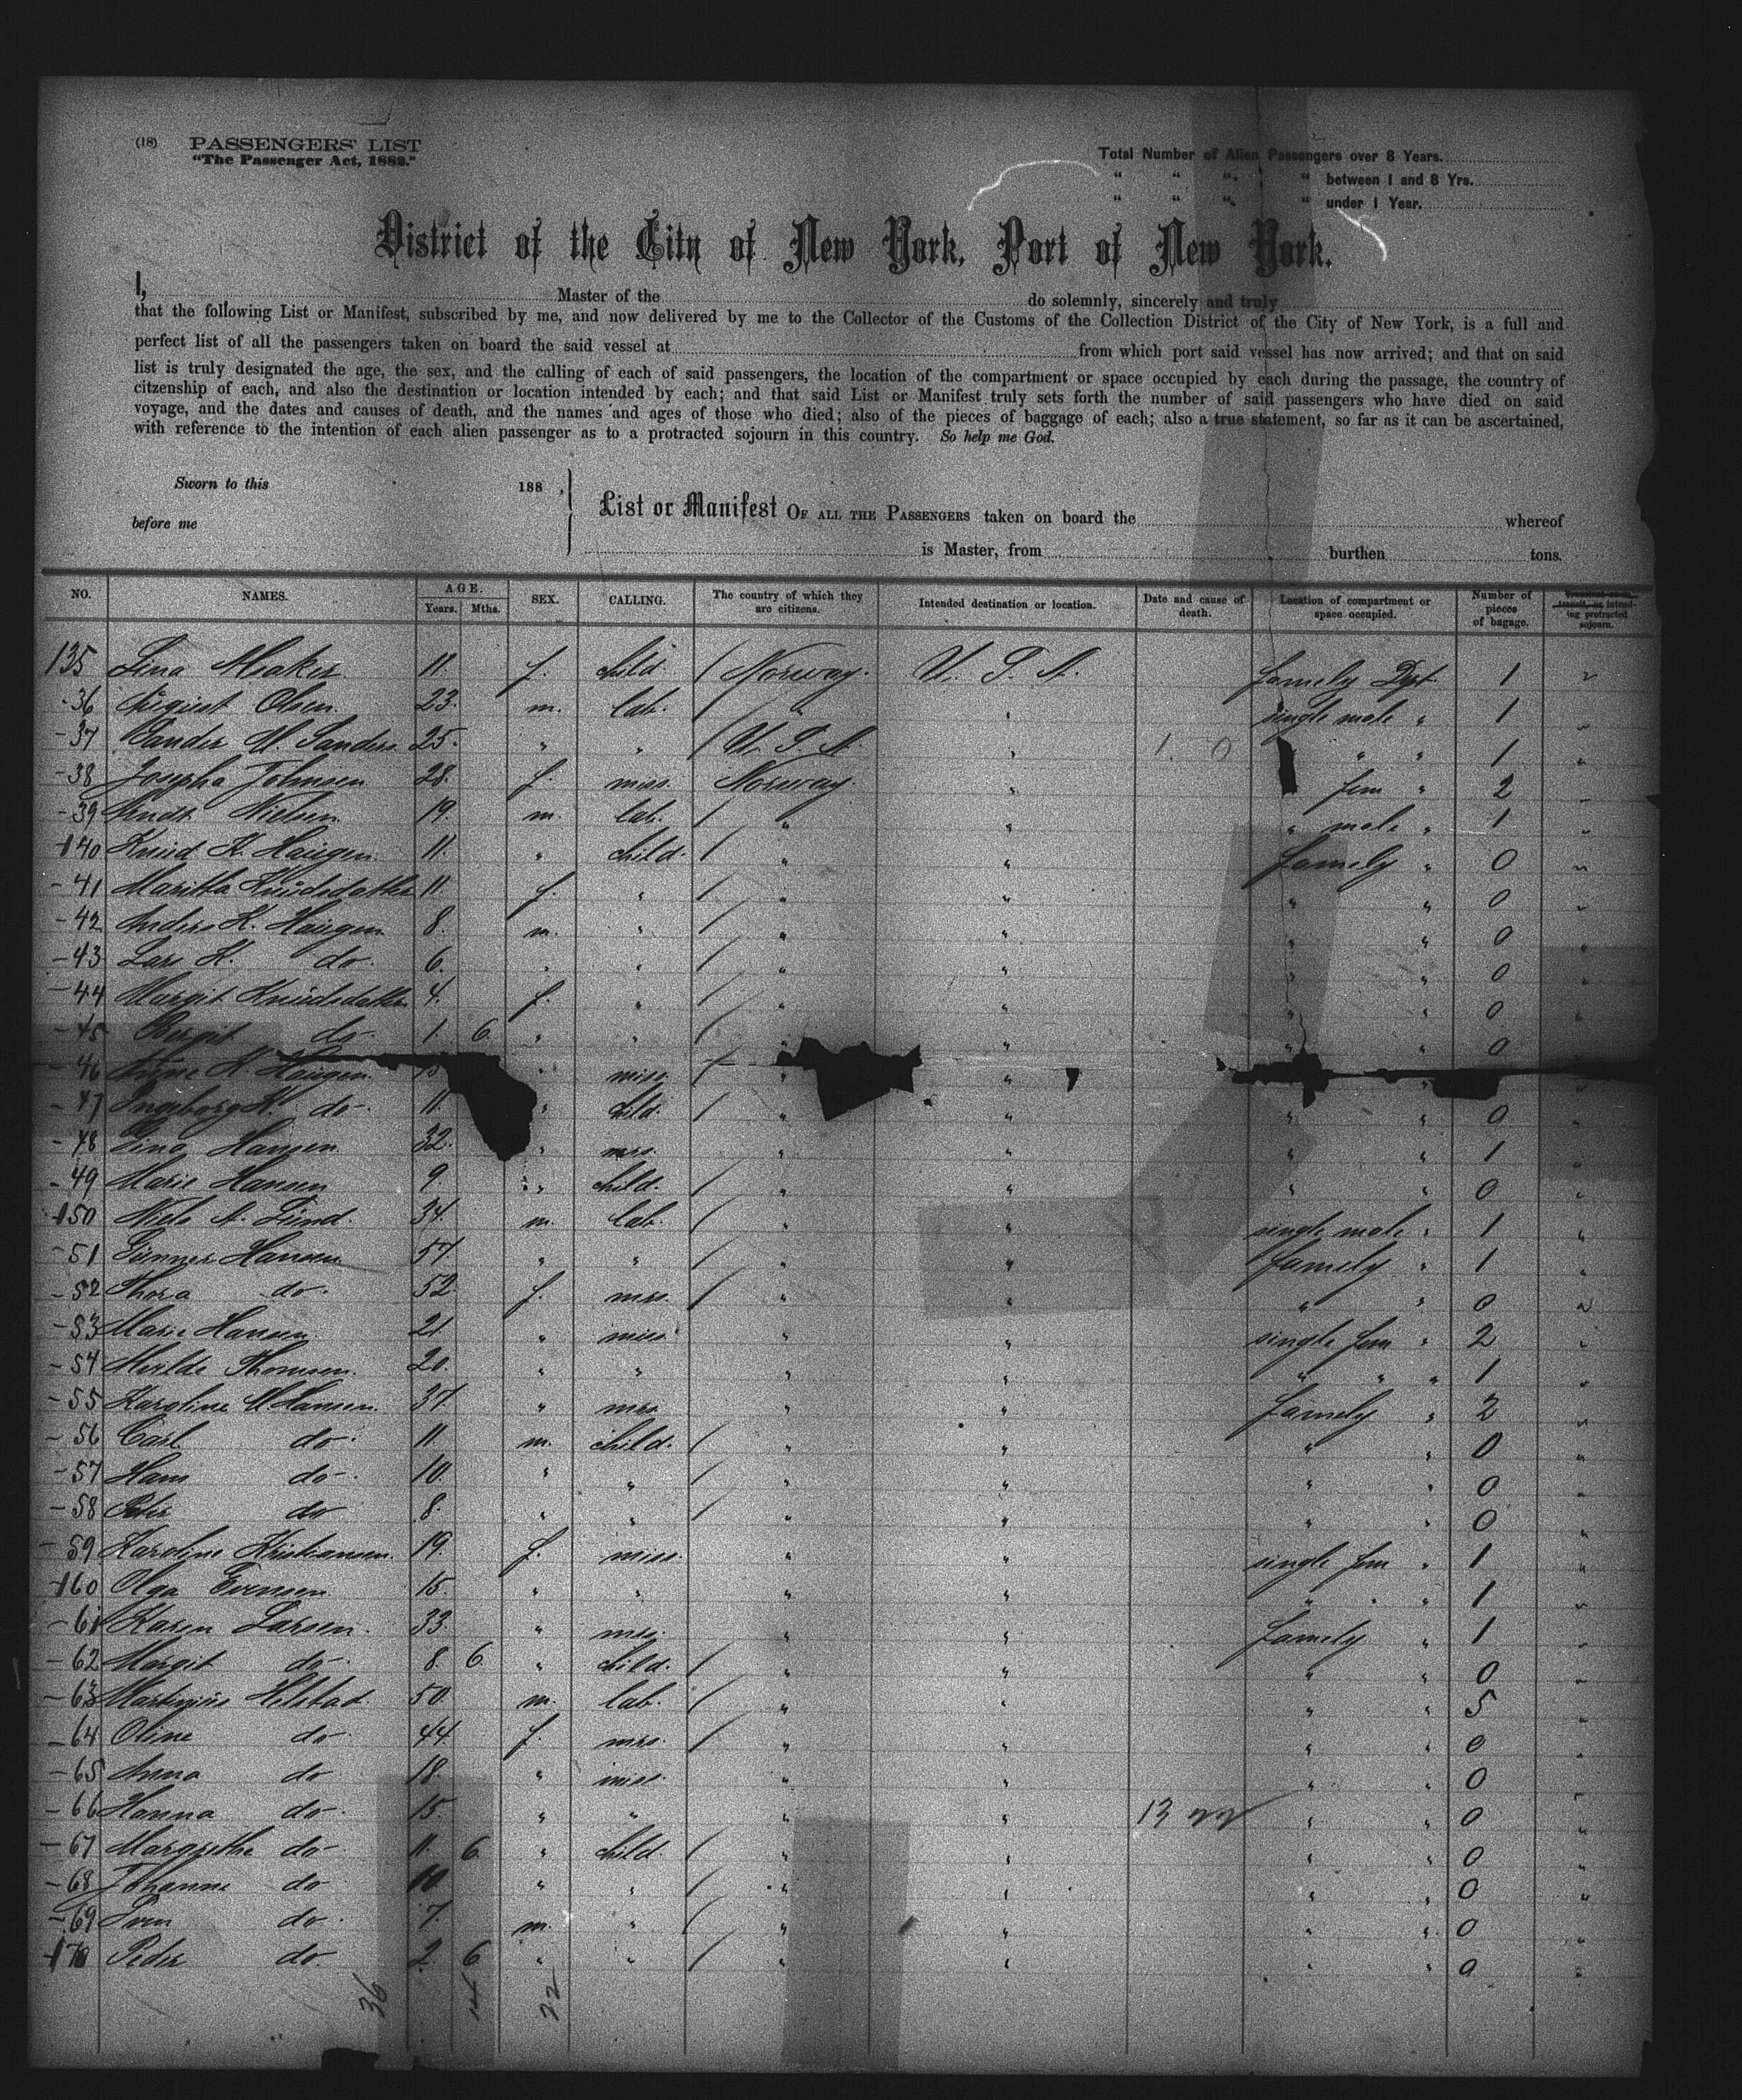 (18) PASSENGERS' LIST
"The Passenger Act, 1882."
Total Number of Alien Passengers over 8 Years.
" " " " between 1 and 8 Yrs.
" " " " under 1 Year.
District of the City of New York, Port of New York.
I, Master of the do solemnly, sincerely and truly
that the following List or Manifest, subscribed by me, and now delivered by me to the Collector of the Customs of the Collection District of the City of New York, is a full and
perfect list of all the passengers taken on board the said vessel at from which port said vessel has now arrived; and that on said
list is truly designated the age, the sex, and the calling of each of said passengers, the location of the compartment or space occupied by each during the passage, the country of
citzenship of each, and also the destination or location intended by each; and that said List or Manifest truly sets forth the number of said passengers who have died on said
voyage, and the dates and causes of death, and the names and ages of those who died; also of the pieces of baggage of each; also a true statement, so far as it can be ascertained,
with reference to the intention of each alien passenger as to a protracted sojourn in this country. So help me God.
Sworn to this 188 ,
before me
List or Manifest OF ALL THE PASSENGERS taken on board the whereof
is Master, from burthen tons.
NO. NAMES. AGE. Years. Mths. SEX. CALLING. The country of which they are citizens. Intended destination or location. Date and cause of death. Location of compartment or space occupied. Number of pieces of bagage. transit, or intending protracted sojourn.
135 Lina 11. f. child. Norway. U. S. A. Famely Dpt. 1 "
-36 August Olsen. 23. m. lab. " " single male " 1 "
-37 Sander M. Sanders. 25. " " U. S. A. " 1 0 " " 1 "
-38 Josepha Johnsen 28. f. miss. Norway. " " fem " 2 "
-39 Nielsen 19. m. lab. " " " male " 1 "
140 Knud K. Haugen. 11. " child. " " Famely " 0 "
-41 Maritha Knudsdatter 11 f. " " " " " 0 "
-42 Anders K. Haugen 8. m. " " " " " 0 "
-43 Lars K. do. 6. " " " " " " 0 "
-44 Margit Knudsdatter 4. f. " " " " " 0 "
-45 Birgit do- 1. 6. " " " " " " 0 "
-46 K. Haugen. " miss. " "
-47 Ingeborg K. do-. 11. " child. " " " " 0 "
-48 Lina Hansen 32. " mrs. " " " " 1 "
-49 Marie Hansen 9. " child. " " " " 0 "
150 Niels A. Lund. 34. m. lab. " " single male " 1 "
-51 Gunner Hansen 57. " " " " Famely " 1 "
-52 Thora do. 52. f. mrs. " " " " 0 "
-53 Marie Hansen 21 " miss. " " single fem " 2 "
-54 Thomsen. 20. " " " " " " " 1 "
-55 Karoline M. Hansen. 37. " mrs. " " Famely " 2 "
-56 Carl do- 11 m. child. " " " " 0 "
-57 Hans do-. 10. " " " " " " 0 "
-58 Peter do 8. " " " " " " 0 "
-59 Karoline Kristiansen. 19. f. miss. " " single fem " 1 "
160 Olga Evensen 15. " " " " " " " 1 "
-61 Karen Larsen. 33. " mrs. " " Famely " 1 "
-62 Margit do-. 8. 6. " child. " " " " 0 "
-63 Martinius Helstad. 50. m. lab. " " " " 5 "
-64 Oline do- 44 f. mrs. " " " " 0 "
-65 Anna do 18. " miss. " " " " 0 "
-66 Hanna do-. 15. " " " " 13 22 " " 0 "
-67 Margretha do-. 11. 6. " child. " " " " 0 "
-68 Johanne do 10 " " " " " " 0 "
-69 Sven do. 7. m. " " " " " 0 "
170 Peder do. 2. 6 " " " " " " 0 "
36 22